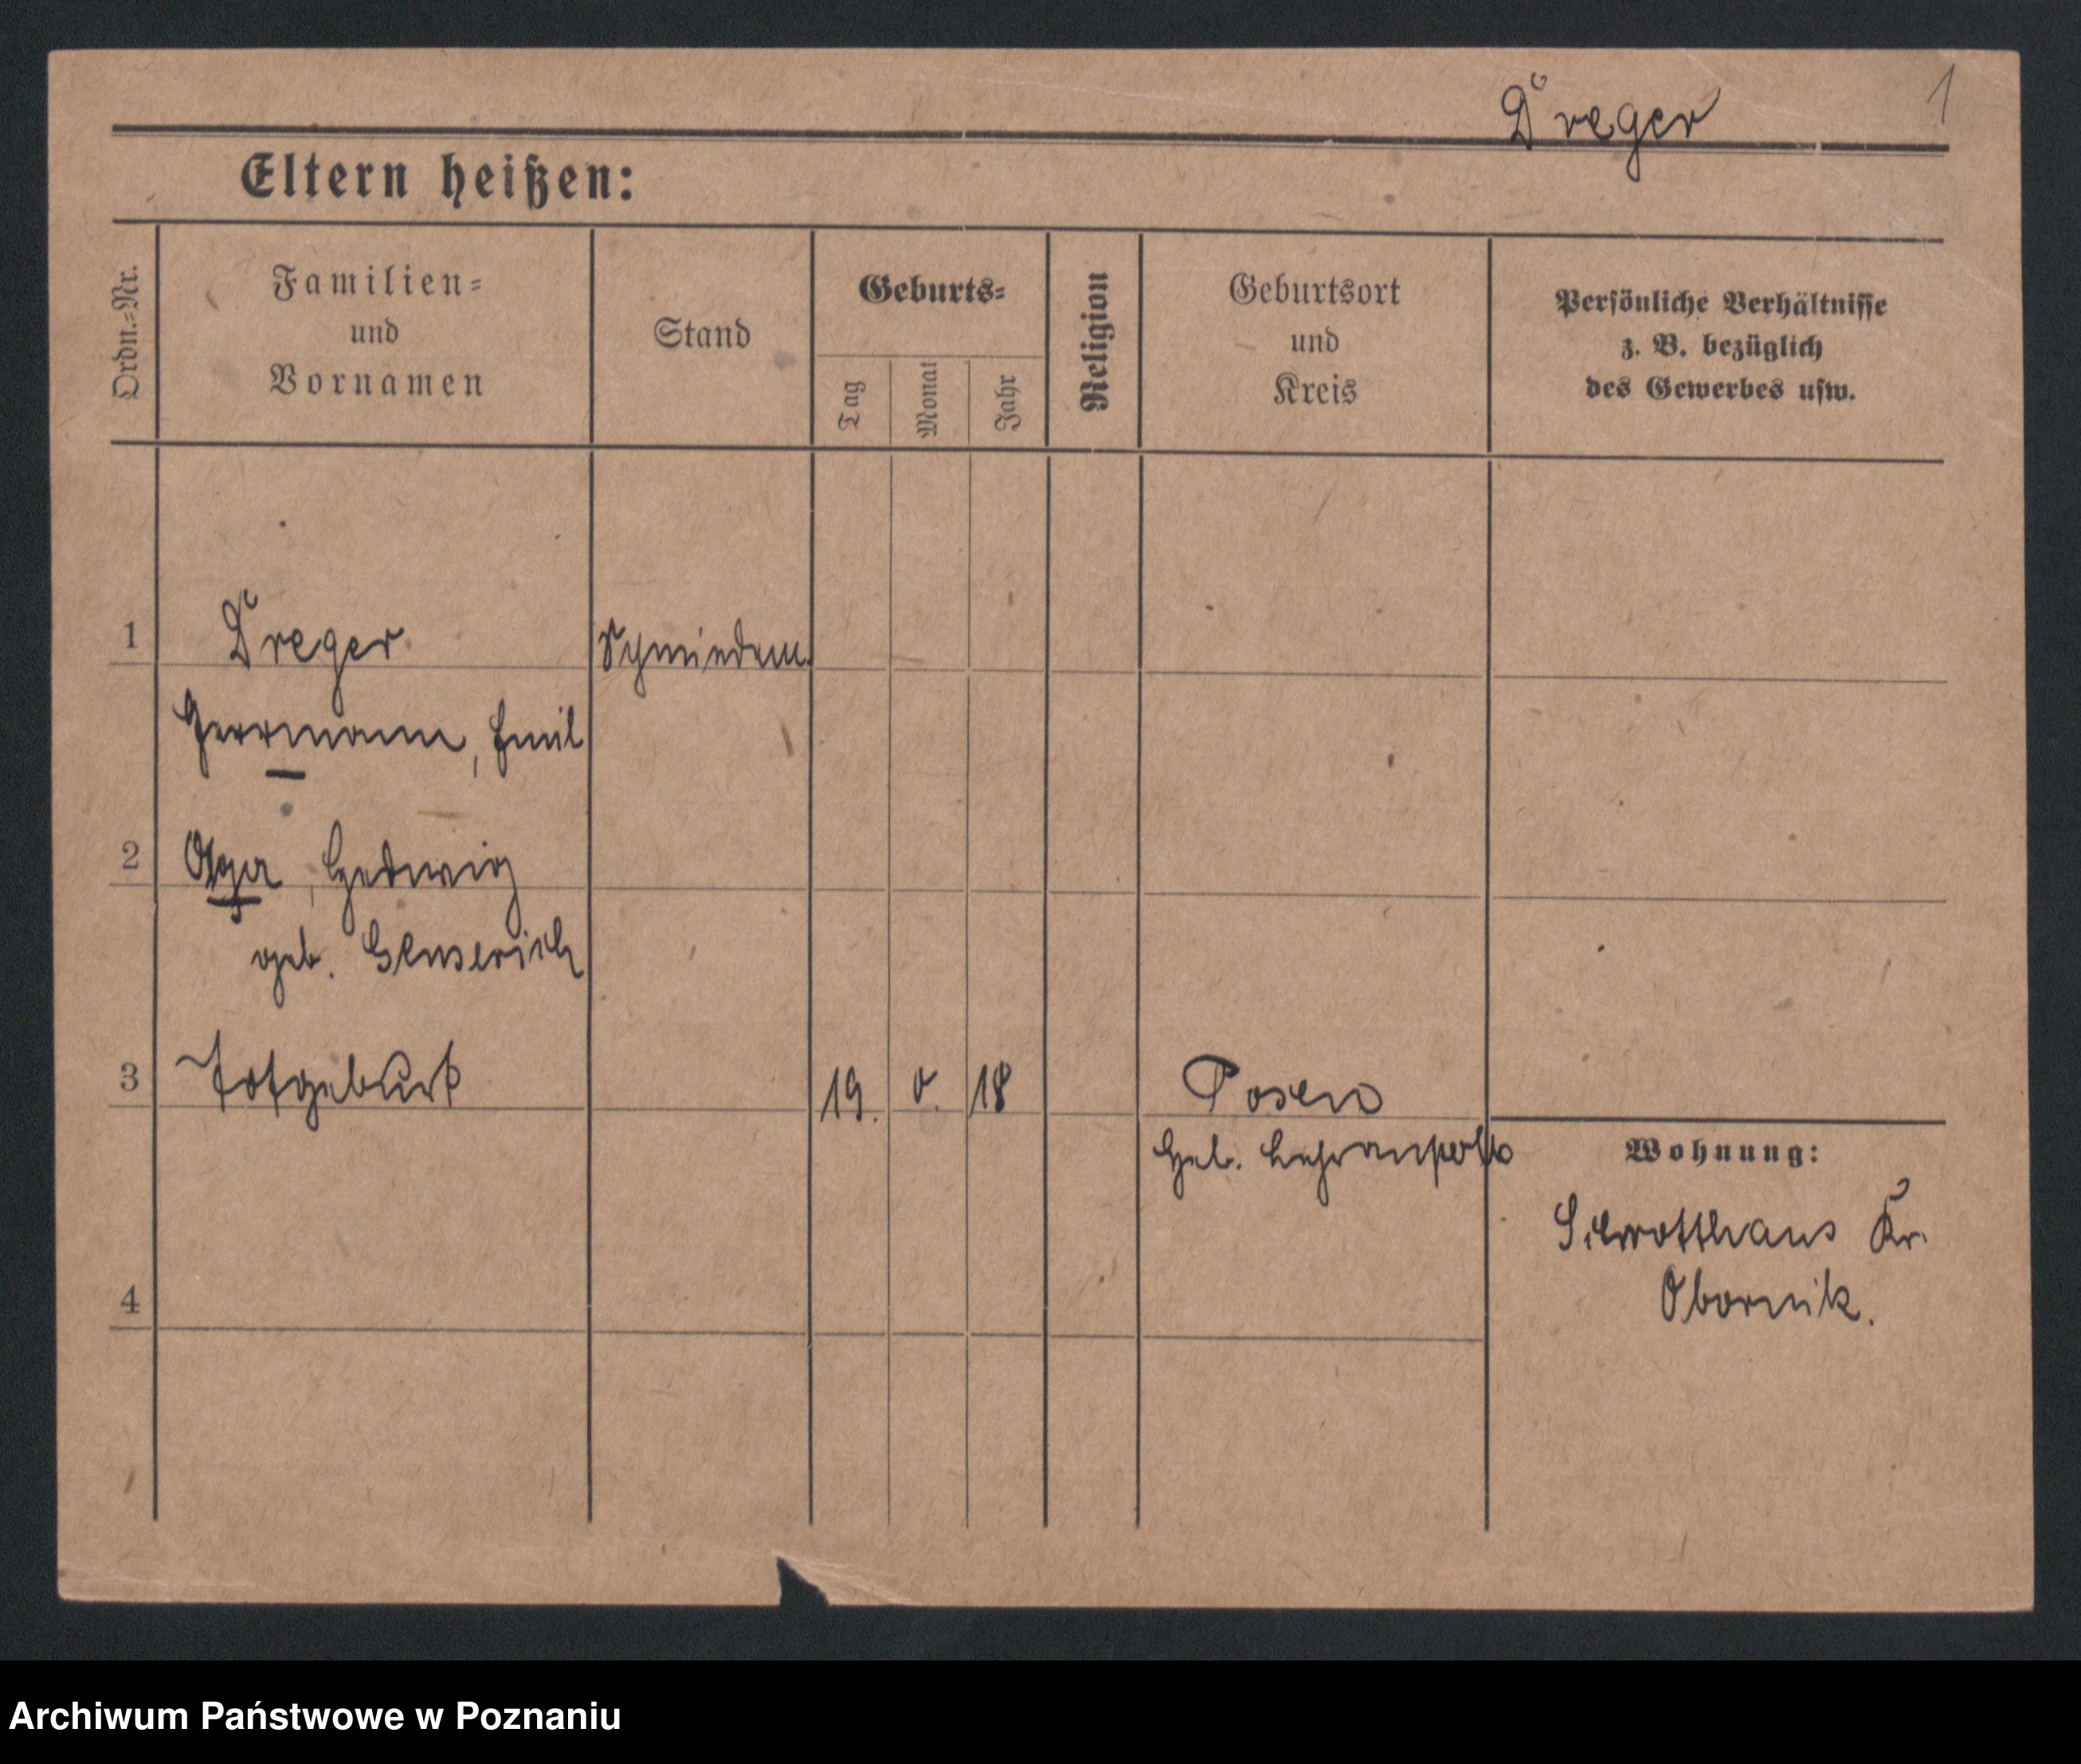 Dreger
1
Eltern heißen:
Ordn.-Nr.
Familien-
und
Vornamen
Stand
Geburts-
Tag
Monat
Jahr
Religion
Geburtsort
und
Kreis
Persönliche Verhältnisse
z. B. bezüglich
des Gewerbes usw.
1 Dreger Schmiedem.
Herrmann, Emil
2 Olga, Hedwig
geb. Genserich
3 Totgeburt 19. 18 Posen
Heb. Lehranstalt
Wohnung:
Schrotthaus Kr.
Obornik.
4
Archiwum Państwowe w Poznaniu